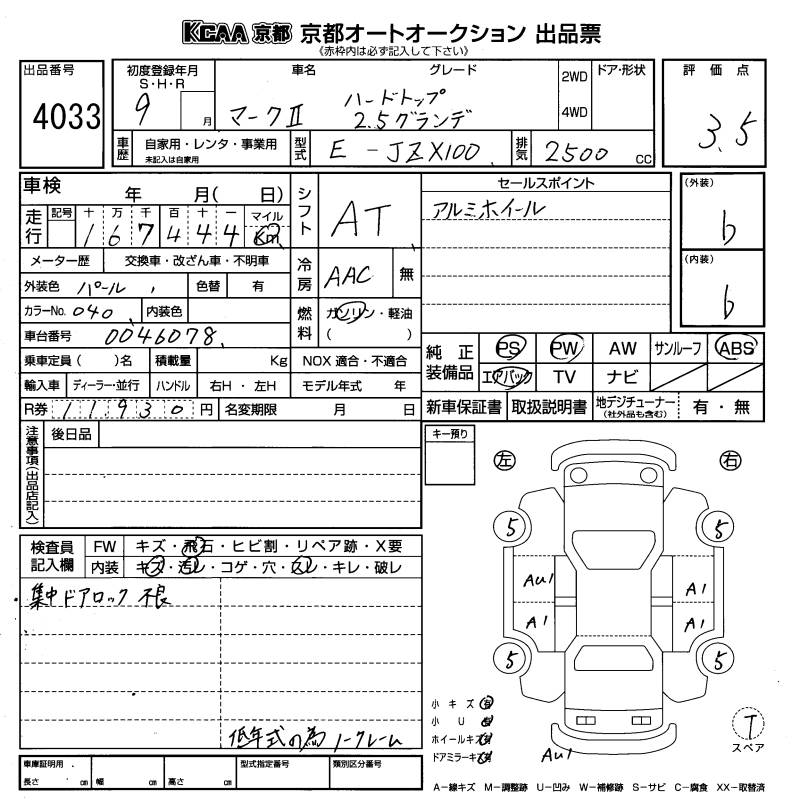 KCAA 京都 京都オートオークション 出品票
《赤枠内は必ず記入して下さい》
出品番号
4033
初度登録年月
S・H・R
9 月
車名
マークⅡ
グレード
ハードトップ
2.5グランデ
2WD
4WD
ドア・形状
評価点
3.5
車歴
自家用・レンタ・事業用
未記入は自家用
型式
E-JZX100
排気
2500 cc
車検 年 月( 日)
走行 記号 十 万 千 百 十 一 マイル
1 6 7 4 4 4 Km
シフト
AT
メーター歴 交換車・改ざん車・不明車
外装色 パール 色替 有
冷房
AAC 無
カラーNo. 040 内装色
燃料
ガソリン・軽油
( )
車台番号 0046078
乗車定員( )名 積載量 Kg NOX 適合・不適合
輸入車 ディーラー・並行 ハンドル 右H・左H モデル年式 年
R券 11930円 名変期限 月 日
セールスポイント
アルミホイール
(外装)
b
(内装)
b
純正装備品
PS PW AW サンルーフ ABS
エアバック TV ナビ
新車保証書 取扱説明書 地デジチューナー(社外品も含む) 有・無
注意事項(出品店記入)
後日品
キー預り
左
右
検査員記入欄
FW キズ・飛石・ヒビ割・リペア跡・X要
内装 キズ・汚レ・コゲ・穴・スレ・キレ・破レ
・集中ドアロック 不良
低年式の為ノークレーム
5 5
AU1 A1
A1 A1
5 5
小キズ 有
小U 有
ホイールキズ 有
ドアミラーキズ 有
AU1
T
スペア
車庫証明用 型式指定番号 類別区分番号
長さ cm 幅 cm 高さ cm
A−線キズ M−調整跡 U−凹み W−補修跡 S−サビ C−腐食 XX−取替済